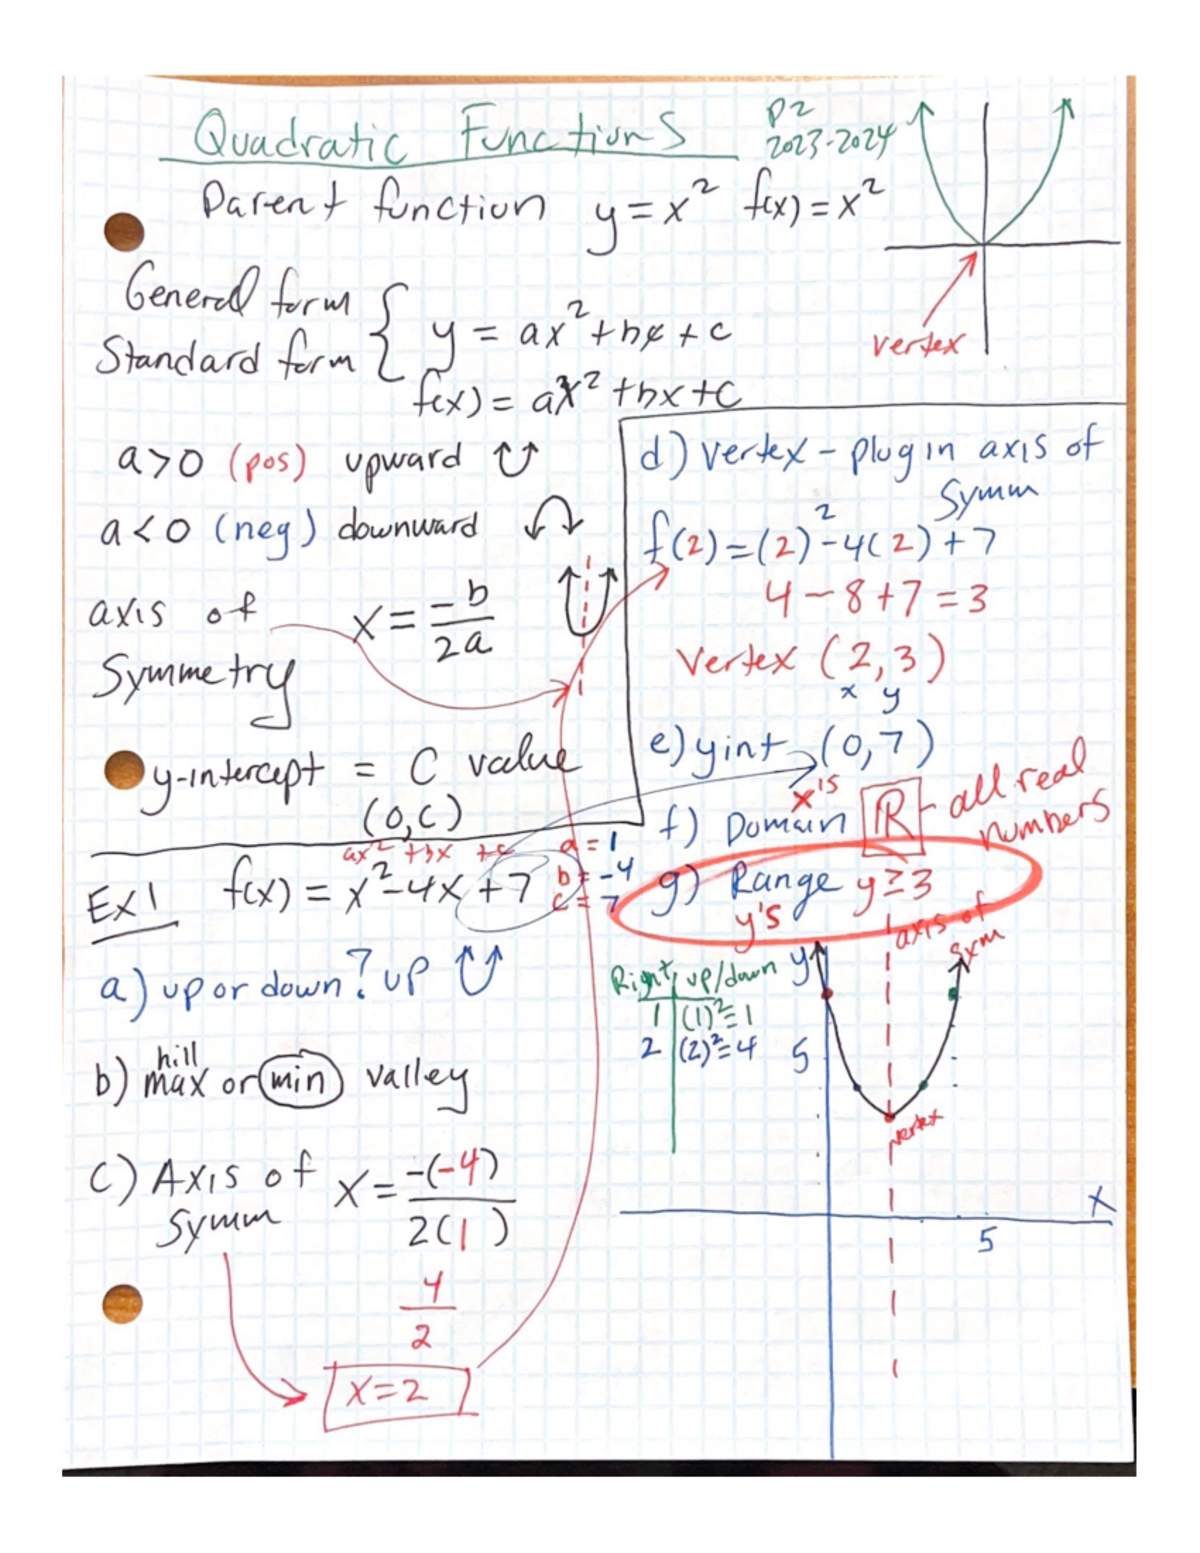 Quadratic Functions
P2
2023-2024
Parent function y = x² f(x) = x²
vertex
General form
Standard form
y = ax² + bx + c
f(x) = ax² + bx + c
a > 0 (pos) upward
a < 0 (neg) downward
axis of
Symmetry
x = -b/2a
y-intercept = C value
(0,C)
d) Vertex - plug in axis of
Symm
f(2) = (2)² - 4(2) + 7
4 - 8 + 7 = 3
Vertex (2,3)
x y
e) y int (0,7)
x's
f) Domain ℝ - all real
numbers
g) Range y ≥ 3
y's
ax² + bx + c
Ex1 f(x) = x² - 4x + 7
a = 1
b = -4
c = 7
a) up or down? up
hill
b) max or min valley
c) Axis of
Symm
x = -(-4)/2(1)
4/2
x = 2
Right up/down
1 (1)² = 1
2 (2)² = 4
y
5
axis of
sym
vertex
x
5